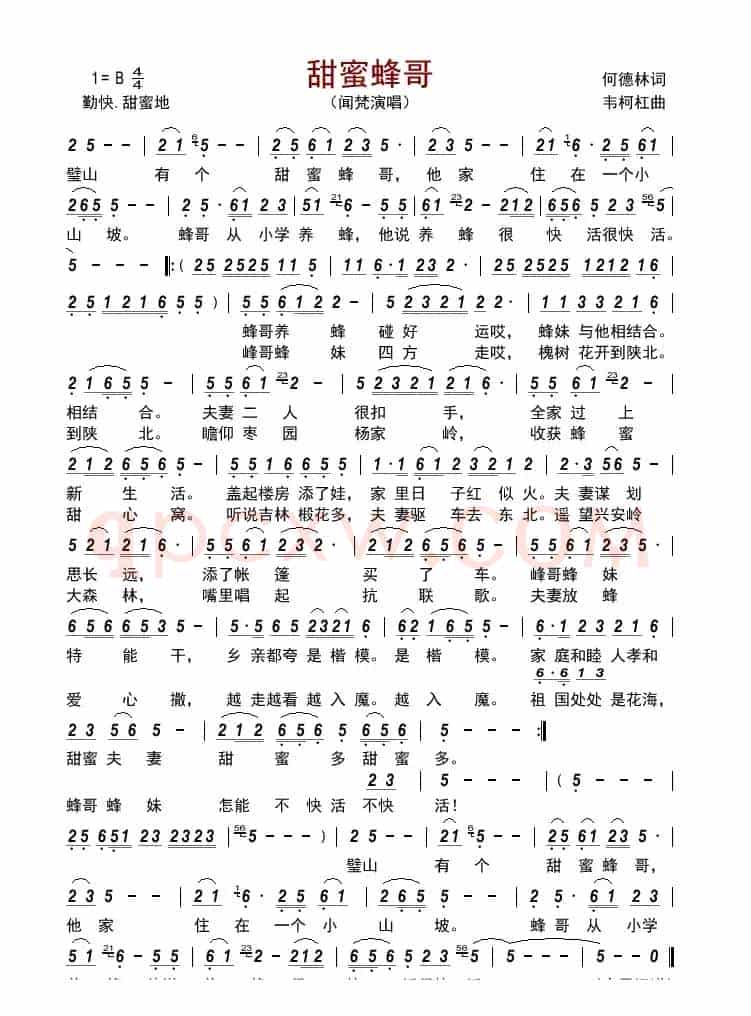 甜蜜蜂哥
1= B 4/4
何德林词
勤快.甜蜜地
（闻梵演唱）
韦柯杠曲
2 5 - - | 2 1 6 5 - - | 2 5 6 1 2 3 · | 2 3 5 - - | 2 1 1 6 · 2 5 6 1 |
璧山 有个 甜蜜蜂哥，他家 住在一个小
2 6 5 5 - - | 2 · 5 6 1 2 3 | 5 1 21 6 - 5 5 | 6 1 23 2 - 2 1 2 | 6 5 6 5 2 3 56 5 |
山坡。 蜂哥从小学养蜂，他说养蜂很 快活很快活。
5 - - - ‖:( 2 5 2 5 2 5 1 1 1 5 | 1 1 6 · 1 2 3 2 · | 2 5 2 5 2 5 1 2 1 2 1 6 |
2 5 1 2 1 6 5 5 ) | 5 5 6 1 2 1 2 | 5 2 3 2 1 2 2 · | 1 1 3 3 2 1 6 |
蜂哥养 蜂 碰好 运哎，蜂妹与他相结合。
峰哥蜂 妹 四方 走哎，槐树花开到陕北。
2 1 6 5 5 - | 5 5 6 1 23 2 - | 5 2 3 2 1 2 1 6 · | 5 5 6 1 2 3 2 - |
相结 合。夫妻二人 很扣 手， 全家过上
到陕 北。瞻仰枣园 杨家 岭， 收获蜂蜜
2 1 2 6 5 6 5 - | 5 5 5 1 6 6 5 5 | 1 · 1 6 1 2 3 2 1 2 | 2 · 3 5 6 5 - |
新 生 活。盖起楼房 添了娃，家里日 子红 似火。夫妻谋 划
甜 心 窝。听说吉林 椴花多，夫妻驱 车去 东北。遥望兴安岭
5 2 1 2 1 6 - | 5 5 6 1 2 3 - | 2 1 2 6 5 6 5 - | 5 5 2 3 2 - |
思长 远， 添了帐 篷 买 了 车。 峰哥蜂 妹
大森 林， 嘴里唱 起 抗 联 歌。夫妻放 蜂
qpcxw.com
6 5 6 5 6 3 5 - | 5 · 5 6 5 2 3 2 1 6 | 6 2 1 6 5 6 5 - | 6 · 1 2 3 2 1 6 |
特 能 干， 乡亲都夸是楷模。是楷 模。 家庭和睦人孝和
6 · 6 6 1 3
爱 心 撒， 越走越看越入魔。越入 魔。 祖国处处是花海，
2 3 5 - - | 2 1 2 6 5 6 5 6 5 6 | 5 - - - :‖
甜蜜夫 妻 甜 蜜 多 甜蜜 多。
2 3 | 5 - - - | ( 5 - - - |
蜂哥蜂 妹 怎能 不快活不快 活！
2 5 6 5 1 2 3 2 3 2 3 | 56 5 - - - ) | 2 5 - - | 2 1 6 5 - - | 2 5 6 1 2 3 · |
璧山 有个 甜蜜蜂哥，
2 3 5 - - | 2 1 1 6 · 2 5 6 1 | 2 6 5 5 - - | 2 · 5 6 1 2 3 |
他家 住在一个小 山 坡。 蜂哥从小学
5 1 21 6 - 5 5 | 6 1 23 2 - 2 1 2 | 6 5 6 5 2 3 56 5 | 5 - - - | 5 - - 0 ‖